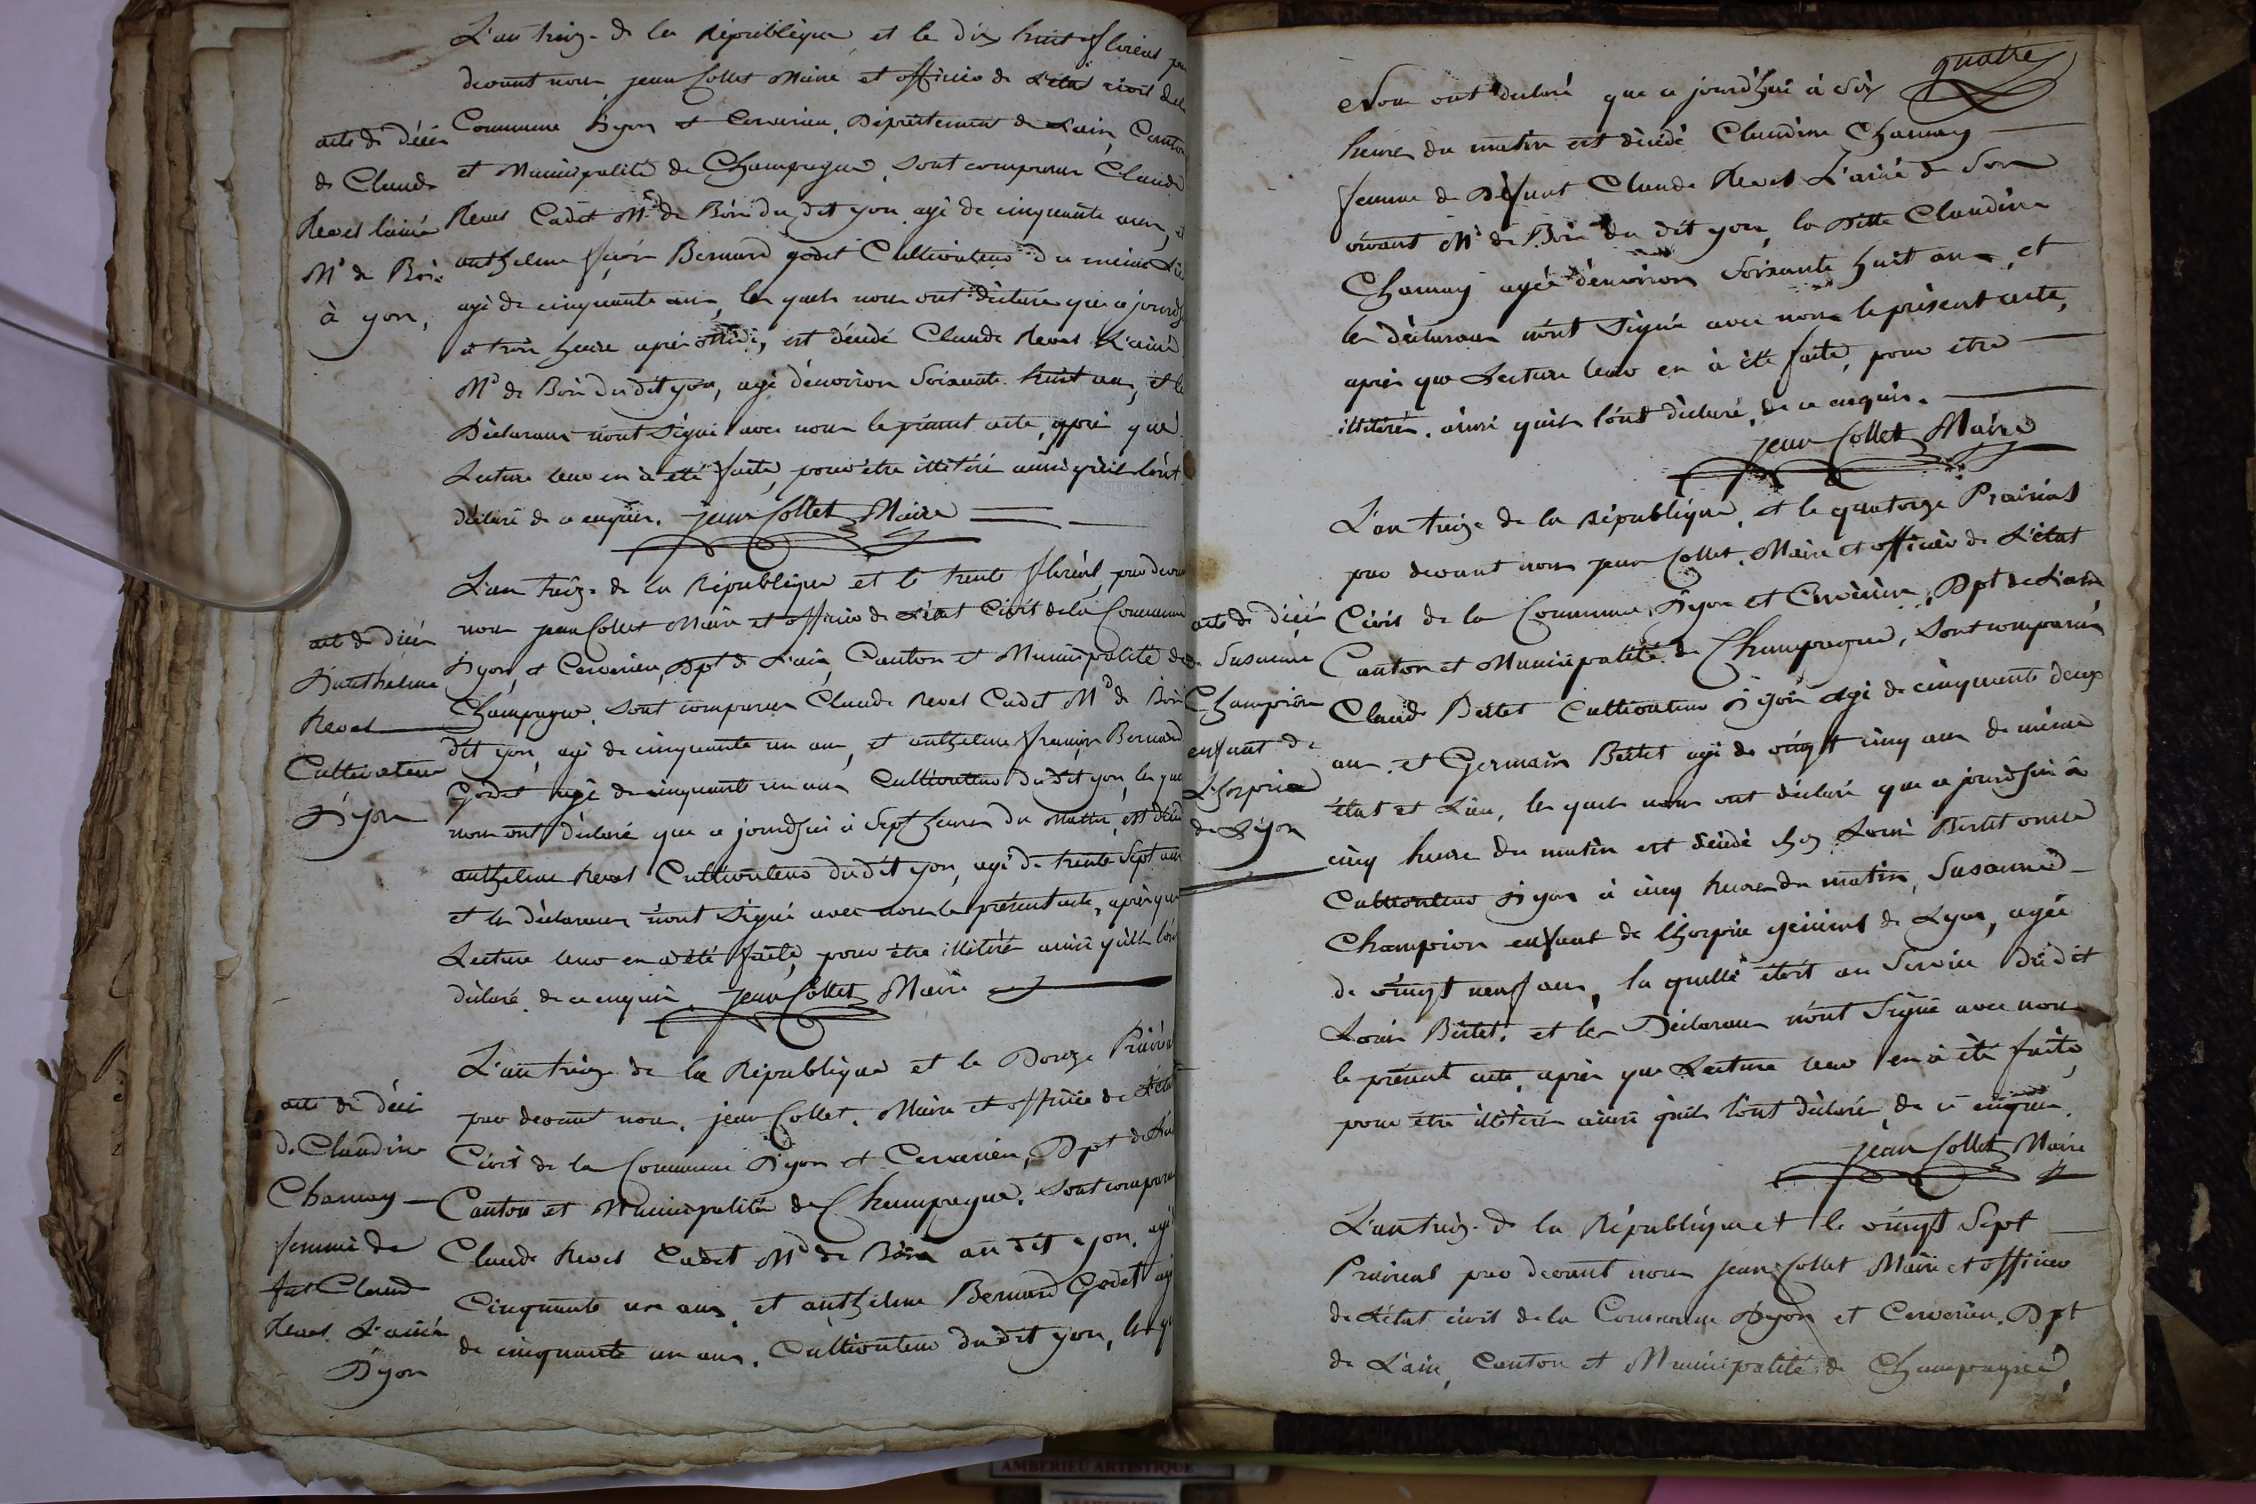 L'an treize de la République et le dix huit floréal par
devant nous jean Collet Maire et officier de L'état civil de la
Commune d'yon et Cerverieu, Département de Lain, Canton
et Municipalité de Champagne, sont comparus Claude
Revet Cadet Md de Bois du dit yon agé de cinquante ans, et
anthelme Bernard godet Cultivateur du même Lieu
agé de cinquante ans, les quels nous ont déclaré que ajourdh
à trois heure après midi, est décédé Claude Revet L'ainé
Md de Bois du dit yon, agé denviron Soixante huit ans, et les
Déclarans n'ont signé avec nous le présent acte, après que
Lecture leur en à été faite, pour être illitéré ainsi qu'il l'ont
déclaré de ce enquis. jean Collet Maire
acte de décés
de Claude
Revet lainé
Md de Bois
à yon,
L'an treize de la République et le trente floréal, par devant
nous jean Collet Maire et officier de L'état Civil de la Commune
d'yon, et Cerverieu, Dpt de L'ain, Canton et Municipalité de
Champagne, sont comparus Claude Revet Cadet Md de Bois
dit yon, agé de cinquante un ans, et anthelme françois Bernard
Godet agé de cinquante un ans Cultivateur du dit yon, les quels
nous ont déclaré que a jourdhui à Sept heures du matin, est décédé
anthelme Revet Cultivateur du dit yon, agé de trente Sept ans
et les déclarans n'ont signé avec nous le présent acte, après que
Lecture leur en à été faite, pour être illitéré ainsi qu'ils l'ont
déclaré de ce enquis. Jean Collet Maire
acte de décés
D'anthelme
Revet
Cultivateur
D'yon
L'an treize de la République et le Douze Prairial
par devant nous, jean Collet, Maire et officier de L'état
Civil de la Commune D'yon et Cerverieu, Dpt de L'ain
Canton et Municipalité de Champagne, sont comparus
Claude Revet Cadet Md de Bois au dit yon, agé
Cinquante un ans, et anthelme Bernard Godet agé
de cinquante un ans, Cultivateur du dit yon, les qu
acte de décés
de Claudine
Chamay
femme de
fut Claude
Revet L'ainé
D'yon
quatre
Nous ont déclaré que a jourdhui à Six
heures du matin est décédé Claudine Chamay
femme de Défunt Claude Revet L'ainé de Son
vivant Md de Bois du dit yon, la Ditte Claudine
Chamay agée d'environ Soixante huit ans, et
les déclarans n'ont signé avec nous le présent acte,
après que Lecture leur en à été faite, pour être
illitérés, ainsi qu'ils l'ont déclaré, de ce enquis.
jean Collet Maire
L'an treize de la République, et le quatorze Prairial
par devant nous jean Collet, Maire et officier de L'état
Civil de la Commune D'yon et Cerverieu, Dpt de L'ain
Canton et Municipalité de Champagne, Sont comparus
Claude Bertet Cultivateur D'yon agé de cinquante deux
ans, et Germain Bertet agé de vingt cinq ans de même
état et Lieu, les quels nous ont déclaré que a jourdhui à
cinq heure du matin est décédé chez Louis Bertet
Cultivateur D'yon à cinq heures du matin, Susanne
Champion enfant de l'hospice de Lyon, agée
de vingt neuf ans, la quelle étoit au Service du dit
Louis Bertet, et les Déclarans n'ont Signé avec nous
le présent acte, après que Lecture leur en à été faite,
pour être illitéré ainsi qu'ils l'ont déclaré de ce enquis.
jean Collet Maire
acte de décés
de Susanne
Champion
enfant de
L'hospice
de Lÿon
L'an treize de la République et le vingt Sept
Prairial par devant nous jean Collet Maire et officier
de L'état civil de la Commune D'yon et Cerverieu, Dpt
de L'ain, Canton et Municipalité de Champagne,
AMBERIEU ARTISTIQUE